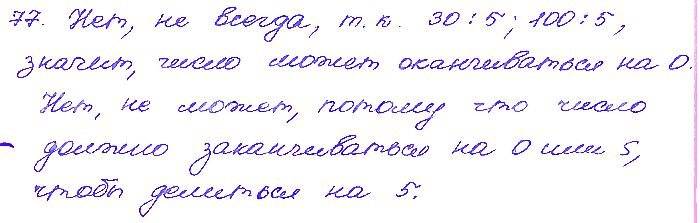 77. Нет, не всегда, т.к. 30:5; 100:5,
значит, число может оканчиваться на 0.
Нет, не может, потому что число
должно заканчиваться на 0 или 5,
чтобы делиться на 5.